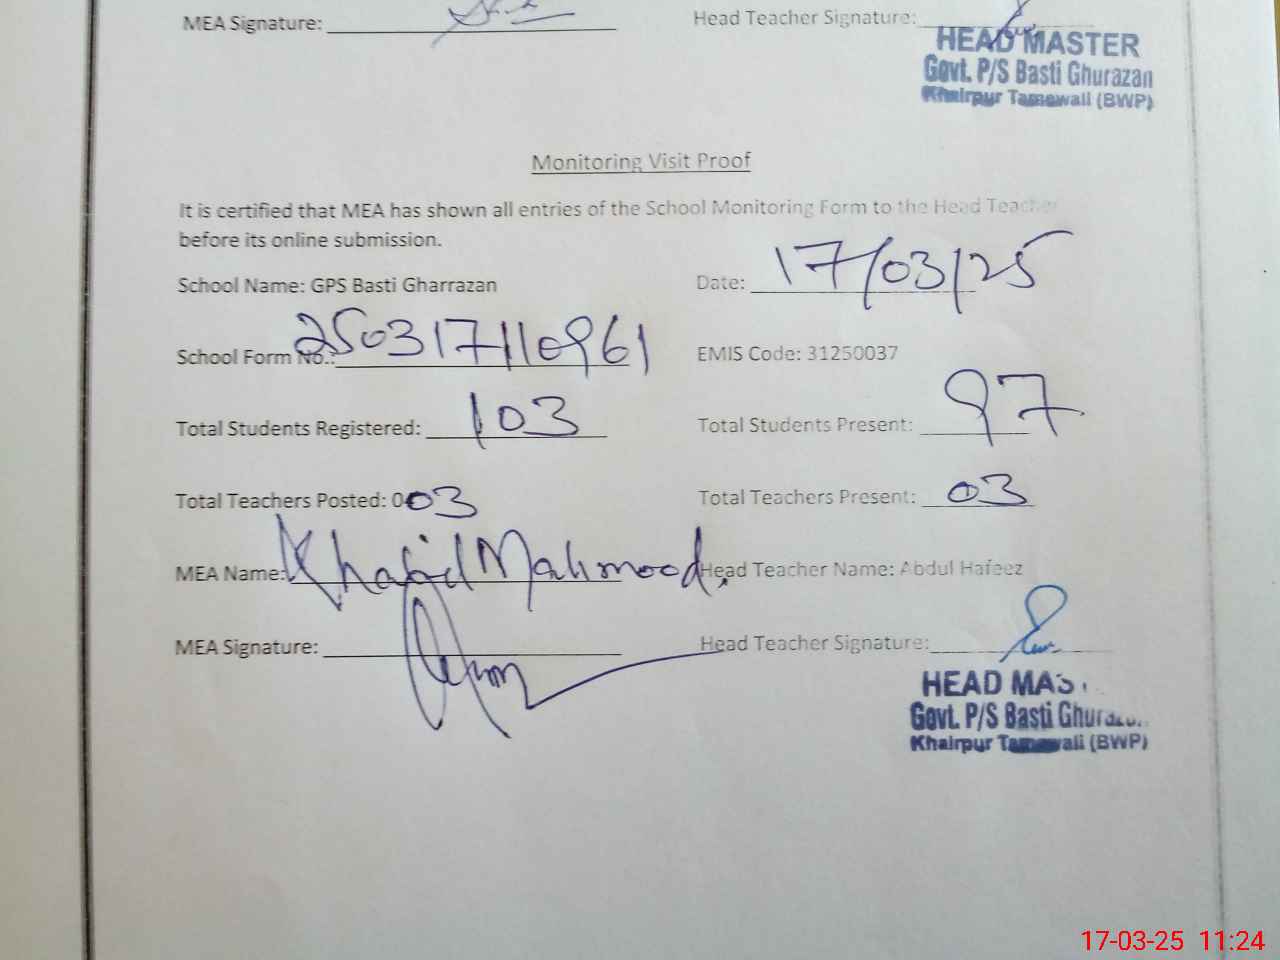 MEA Signature: Head Teacher Signature:
HEAD MASTER
Govt. P/S Basti Ghurazan
Khairpur Tamewali (BWP)
Monitoring Visit Proof
It is certified that MEA has shown all entries of the School Monitoring Form to the Head Teacher
before its online submission.
School Name: GPS Basti Gharrazan Date: 17/03/25
School Form No.: 250317110961 EMIS Code: 31250037
Total Students Registered: 103 Total Students Present: 97
Total Teachers Posted: 003 Total Teachers Present: 03
MEA Name: Khalid Mahmood Head Teacher Name: Abdul Hafeez
MEA Signature: Head Teacher Signature:
HEAD MAS
Govt. P/S Basti Ghurazan
Khairpur Tamewali (BWP)
17-03-25 11:24